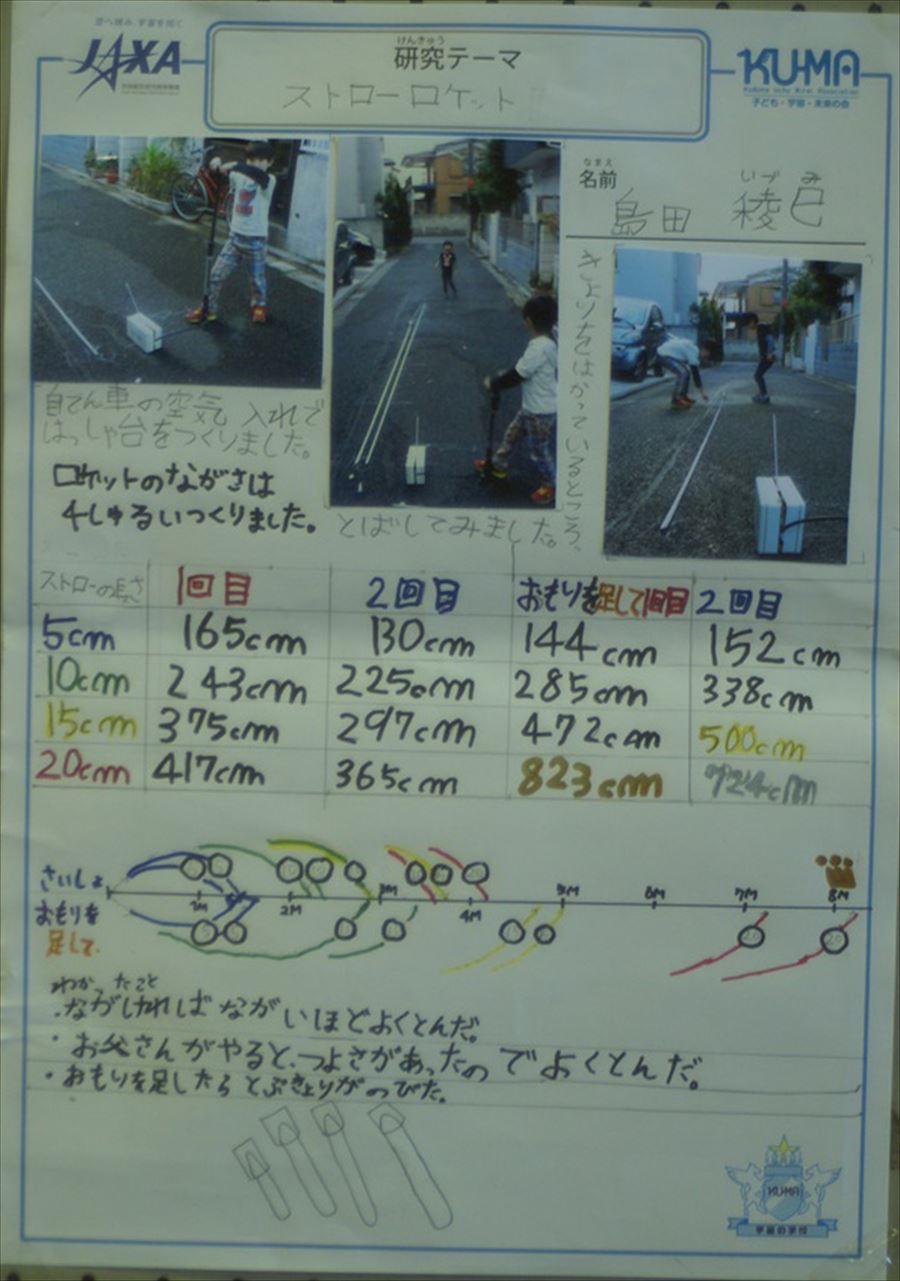 空へ挑み、宇宙を拓く
JAXA
けんきゅう
研究テーマ
ストローロケット
KU-MA
Kodomo Uchu Mirai Association
子ども・宇宙・未来の会
なまえ
名前
いづみ
島田 稜巳
自てん車の空気入れで
はっしゃ台をつくりました。
ロケットのながさは
4しゅるいつくりました。
とばしてみました。
きょりをはかっているところ、
ストローの長さ 1回目 2回目 おもりを足して1回目 2回目
5cm 165cm 130cm 144cm 152cm
10cm 243cm 225cm 285cm 338cm
15cm 375cm 297cm 472cm 500cm
20cm 417cm 365cm 823cm 724cm
さいしょ
1M 2M 3M 4M 5M 6M 7M 8M
おもりを
足して
わかったこと
・ながければながいほどよくとんだ。
・お父さんがやると、つよさがあったのでよくとんだ。
・おもりを足したらとぶきょりがのびた。
KU-MA
宇宙の学校